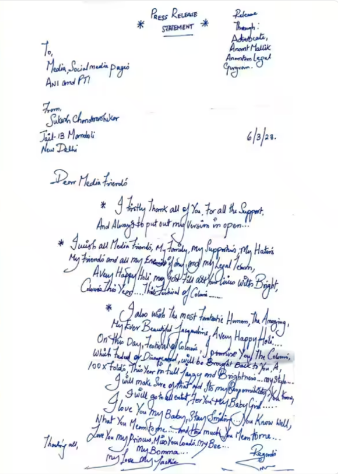 * PRESS RELEASE *
STATEMENT
Release
Through:
Advocate,
Anant Malik
Anantam Legal
Gurgram.
To,
Media, Social media pages
ANI and PTI
From
Sukash Chandrashekar
Jail-13 Mandoli
New Delhi
6/3/23.
Dear Media Friends
* I Firstly Thank all of You For all the Support,
And Always to put out my Version in open...
* I wish all Media Friends, My Family, My Supporters, My Haters
My Friends and all my and my Legal Team,
A very Happy Holi may God Fill all Your Lives With Bright
Colours This Year... This Festival of Colours......
* I also wish the most Fantastic Human, The Amazing,
My Ever Beautiful Jacqueline, A very Happy Holi...
On this Day, Festival of Colours, I promise You, The Colours,
Which Faded or Disappeared, will be Brought Back to You, A,
100 x Folds This Year in Full and Brightness... my Style...
I will make Sure of that and Its my Responsibility. You Know,
I will go to any extent For You My Baby Girl.....
I love You My Baby, Keep Smiling. You Know Well,
What You Mean to me.... and How much You Mean to me...
Love You my Princess, Miss You Loads, My Bee...
My Bomma...
My Love My Jackie
Thanking all,
Regards